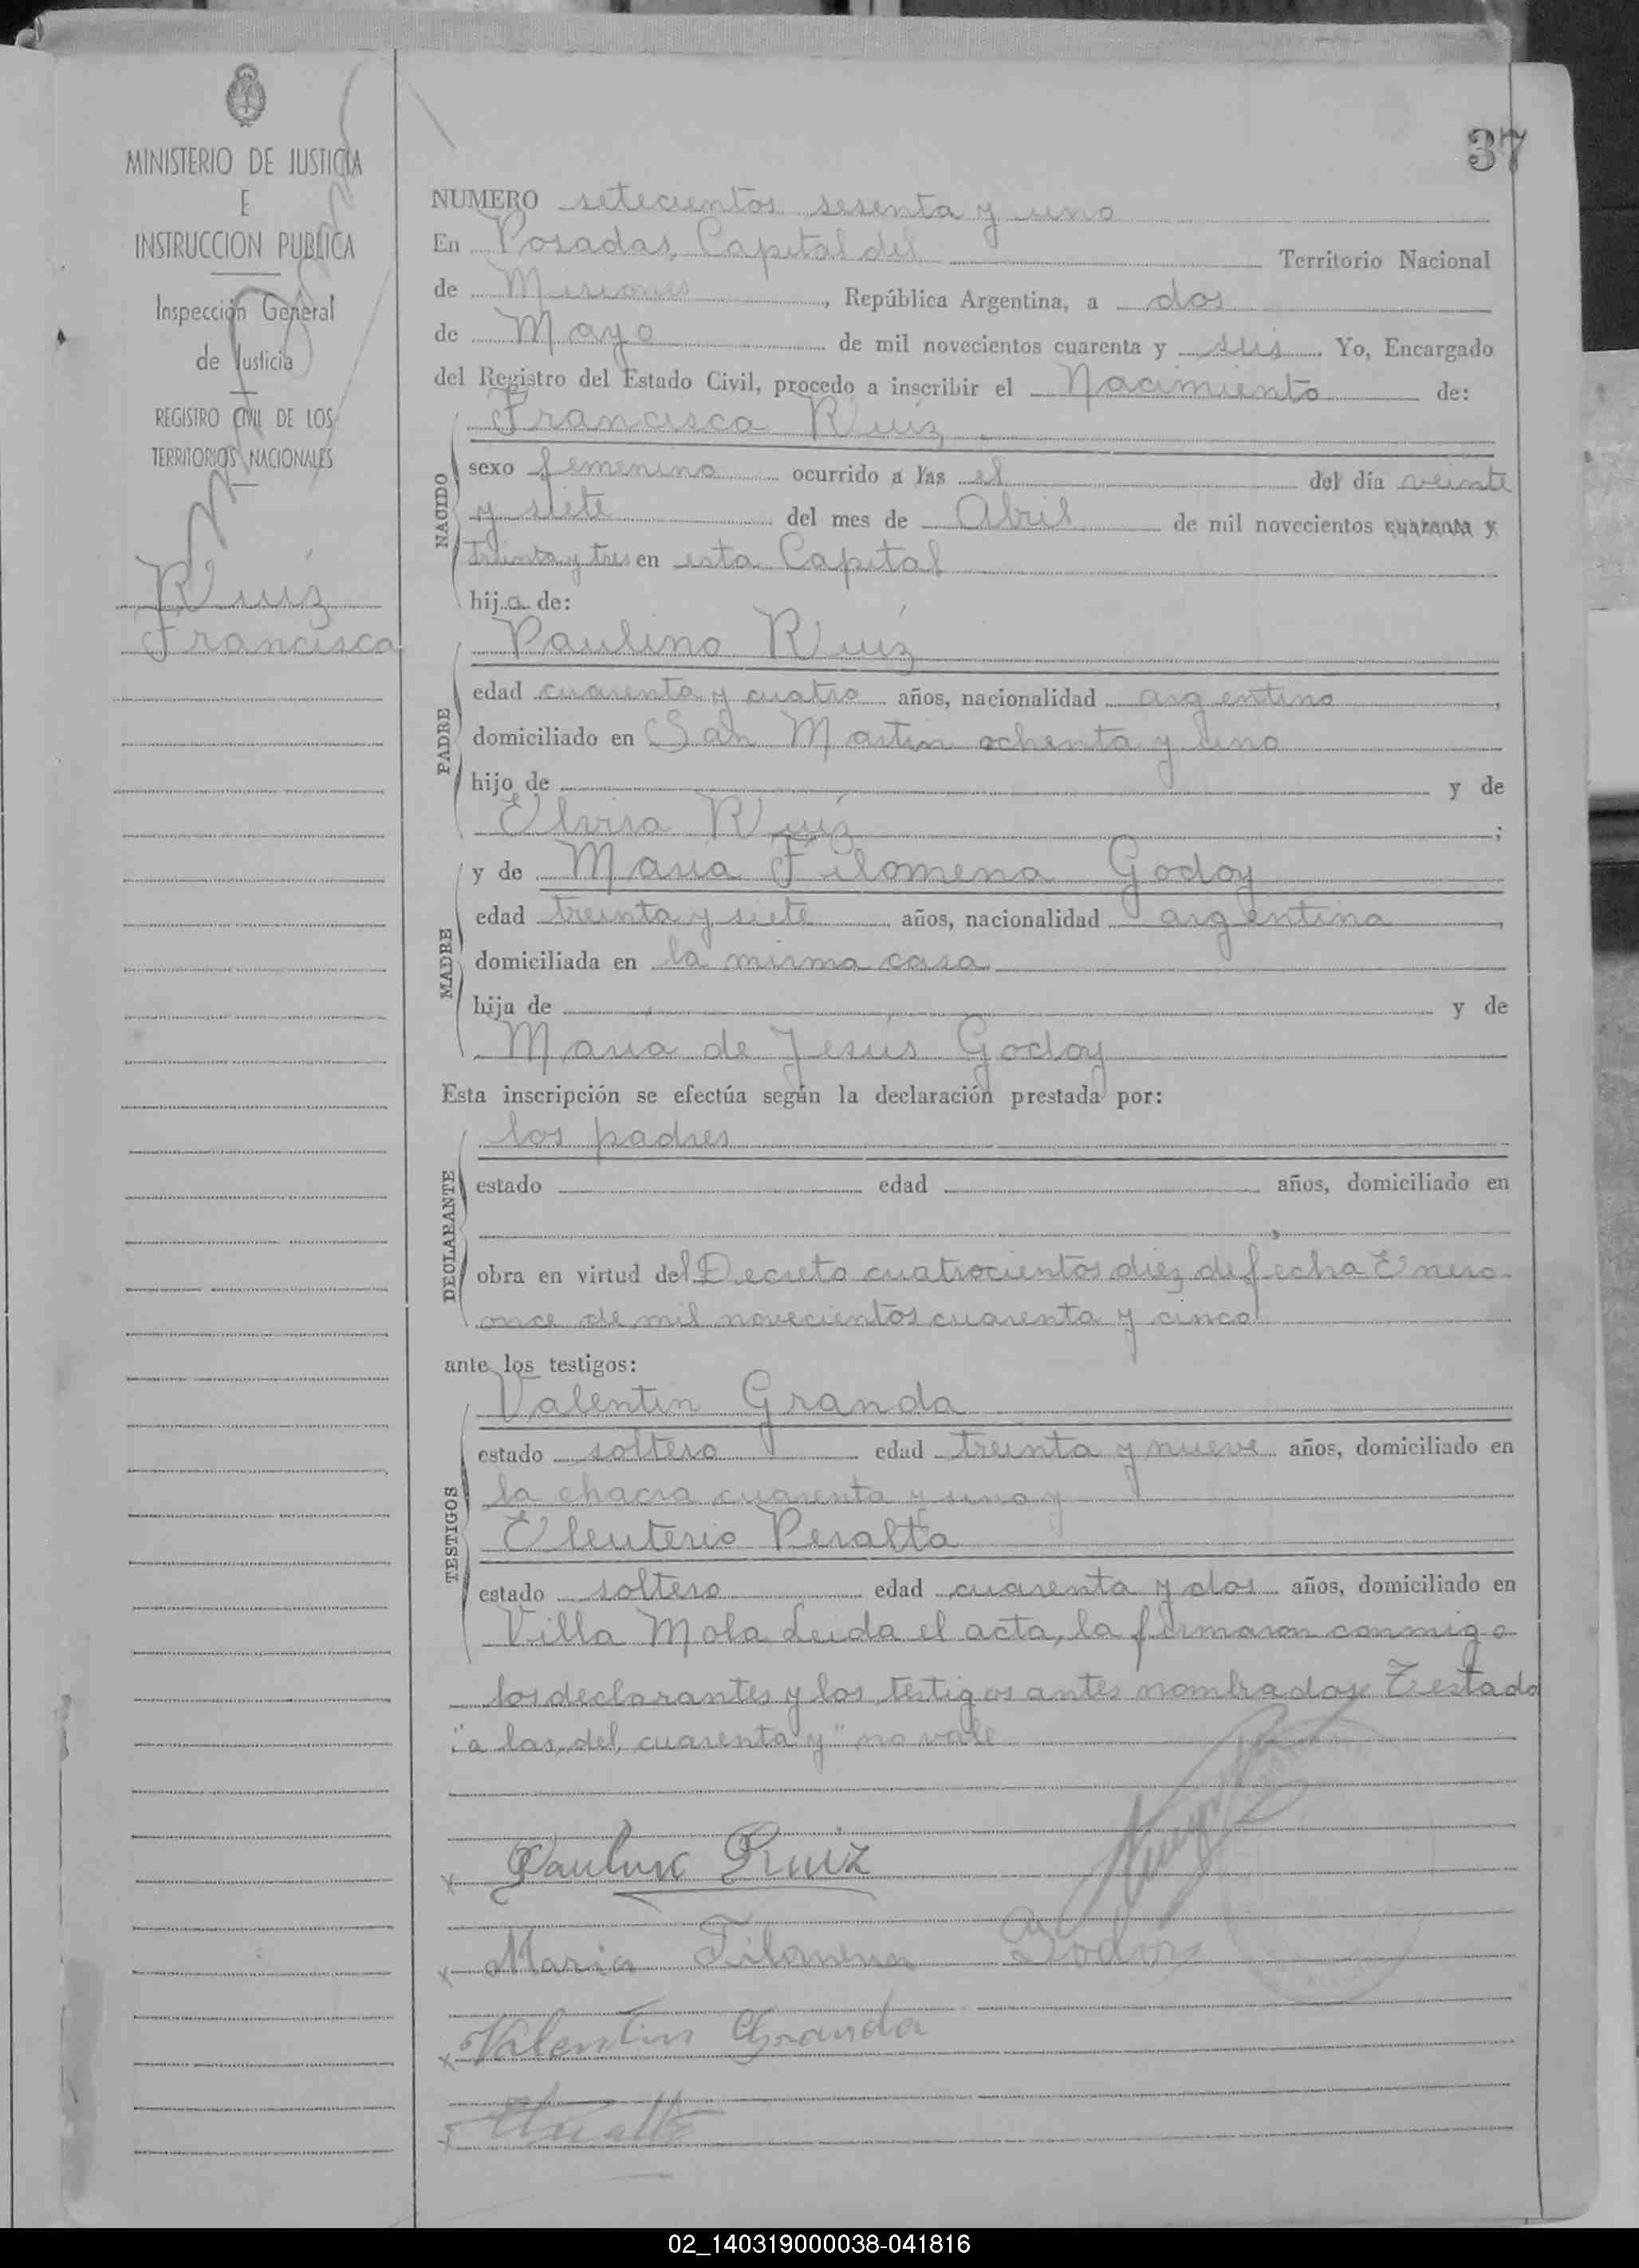 37
MINISTERIO DE JUSTICIA
E
INSTRUCCION PUBLICA
Inspección General
de Justicia
REGISTRO CIVIL DE LOS
TERRITORIOS NACIONALES
Ruíz
Francisca
NUMERO setecientos sesenta y uno
En Posadas, Capital del Territorio Nacional
de Misiones, República Argentina, a dos
de Mayo de mil novecientos cuarenta y seis Yo, Encargado
del Registro del Estado Civil, procedo a inscribir el Nacimiento de:
NACIDO
Francisca Ruíz
sexo femenino ocurrido a las el del día veinte
y siete del mes de Abril de mil novecientos cuarenta y
treinta y tres en esta Capital
hija de:
PADRE
Paulino Ruíz
edad cuarenta y cuatro años, nacionalidad argentino,
domiciliado en San Martin ochenta y uno
hijo de y de
Elvira Ruíz;
MADRE
y de Maria Filomena Godoy
edad treinta y siete años, nacionalidad argentina,
domiciliada en la misma casa
hija de y de
Maria de Jesús Godoy
Esta inscripción se efectúa según la declaración prestada por:
DECLARANTE
los padres
estado edad años, domiciliado en
obra en virtud del Decreto cuatrocientos diez de fecha Enero
once de mil novecientos cuarenta y cinco
ante los testigos:
TESTIGOS
Valentin Granda
estado soltero edad treinta y nueve años, domiciliado en
la chacra cuarenta y uno y
Eleuterio Peralta
estado soltero edad cuarenta y dos años, domiciliado en
Villa Mola Leida el acta, la firmaron conmigo
los declarantes y los testigos antes nombrados. Testado
"a las, del, cuarenta y" no vale
x Paulino Ruiz
x Maria Filomena Godoy
x Valentin Granda
x
02_140319000038-041816